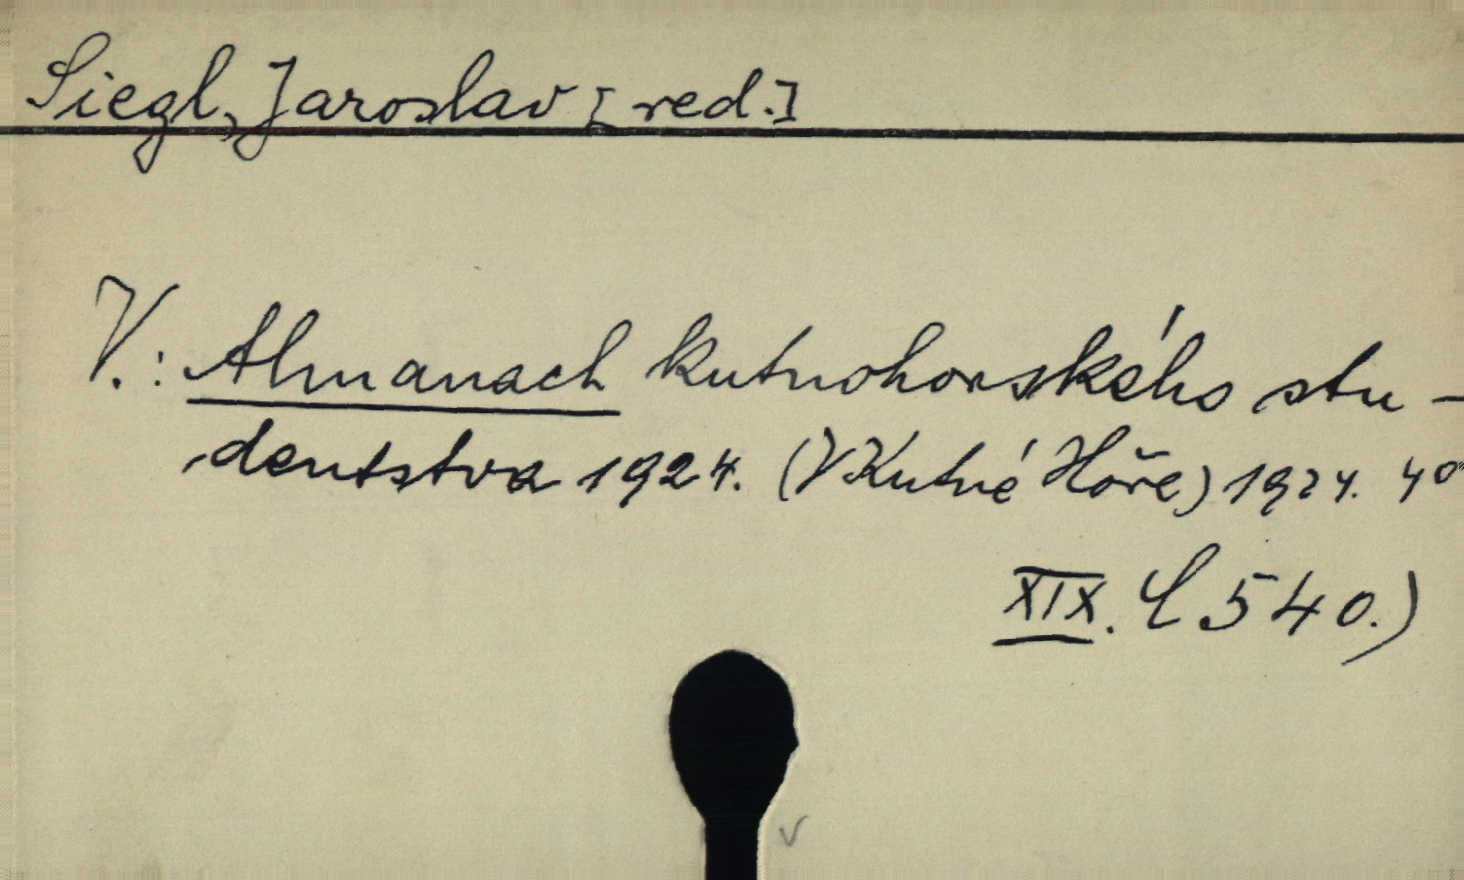 Siegl, Jaroslav [red.]
V.: Almanach kutnohorského stu-
dentstva 1924. (V Kutné Hoře) 1924. 4°
XIX. C 540.)